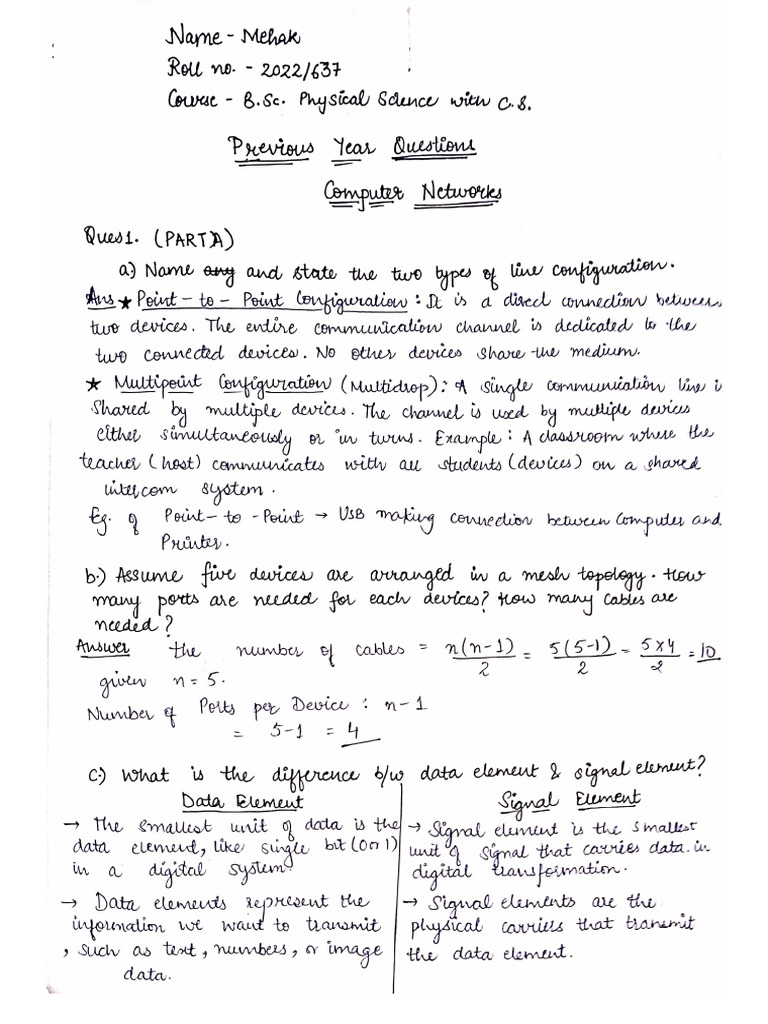 Name - Mehak
Roll no. - 2022/637
Course - B.Sc. Physical Science with C.S.
Previous Year Questions
Computer Networks
Ques1. (PART A)
a) Name any and state the two types of line configuration.
Ans ★ Point-to-Point Configuration: It is a direct connection between
two devices. The entire communication channel is dedicated to the
two connected devices. No other devices share the medium.
★ Multipoint Configuration (Multidrop): A single communication line i
shared by multiple devices. The channel is used by multiple devices
either simultaneously or in turns. Example: A classroom where the
teacher (host) communicates with all students (devices) on a shared
intercom system.
Eg. of Point-to-Point → USB making connection between Computer and
Printer.
b.) Assume five devices are arranged in a mesh topology. How
many ports are needed for each devices? How many cables are
needed?
Answer the number of cables = n(n-1)/2 = 5(5-1)/2 = 5×4/2 = 10
given n = 5.
Number of Ports per Device: n-1
= 5-1 = 4
c.) What is the difference b/w data element & signal element?
Data Element
→ The smallest unit of data is the
data element, like single bit (0 or 1)
in a digital system.
→ Data elements represent the
information we want to transmit
, such as text, numbers, or image
data.
Signal Element
→ Signal element is the smallest
unit of signal that carries data in
digital transformation.
→ Signal elements are the
physical carriers that transmit
the data element.